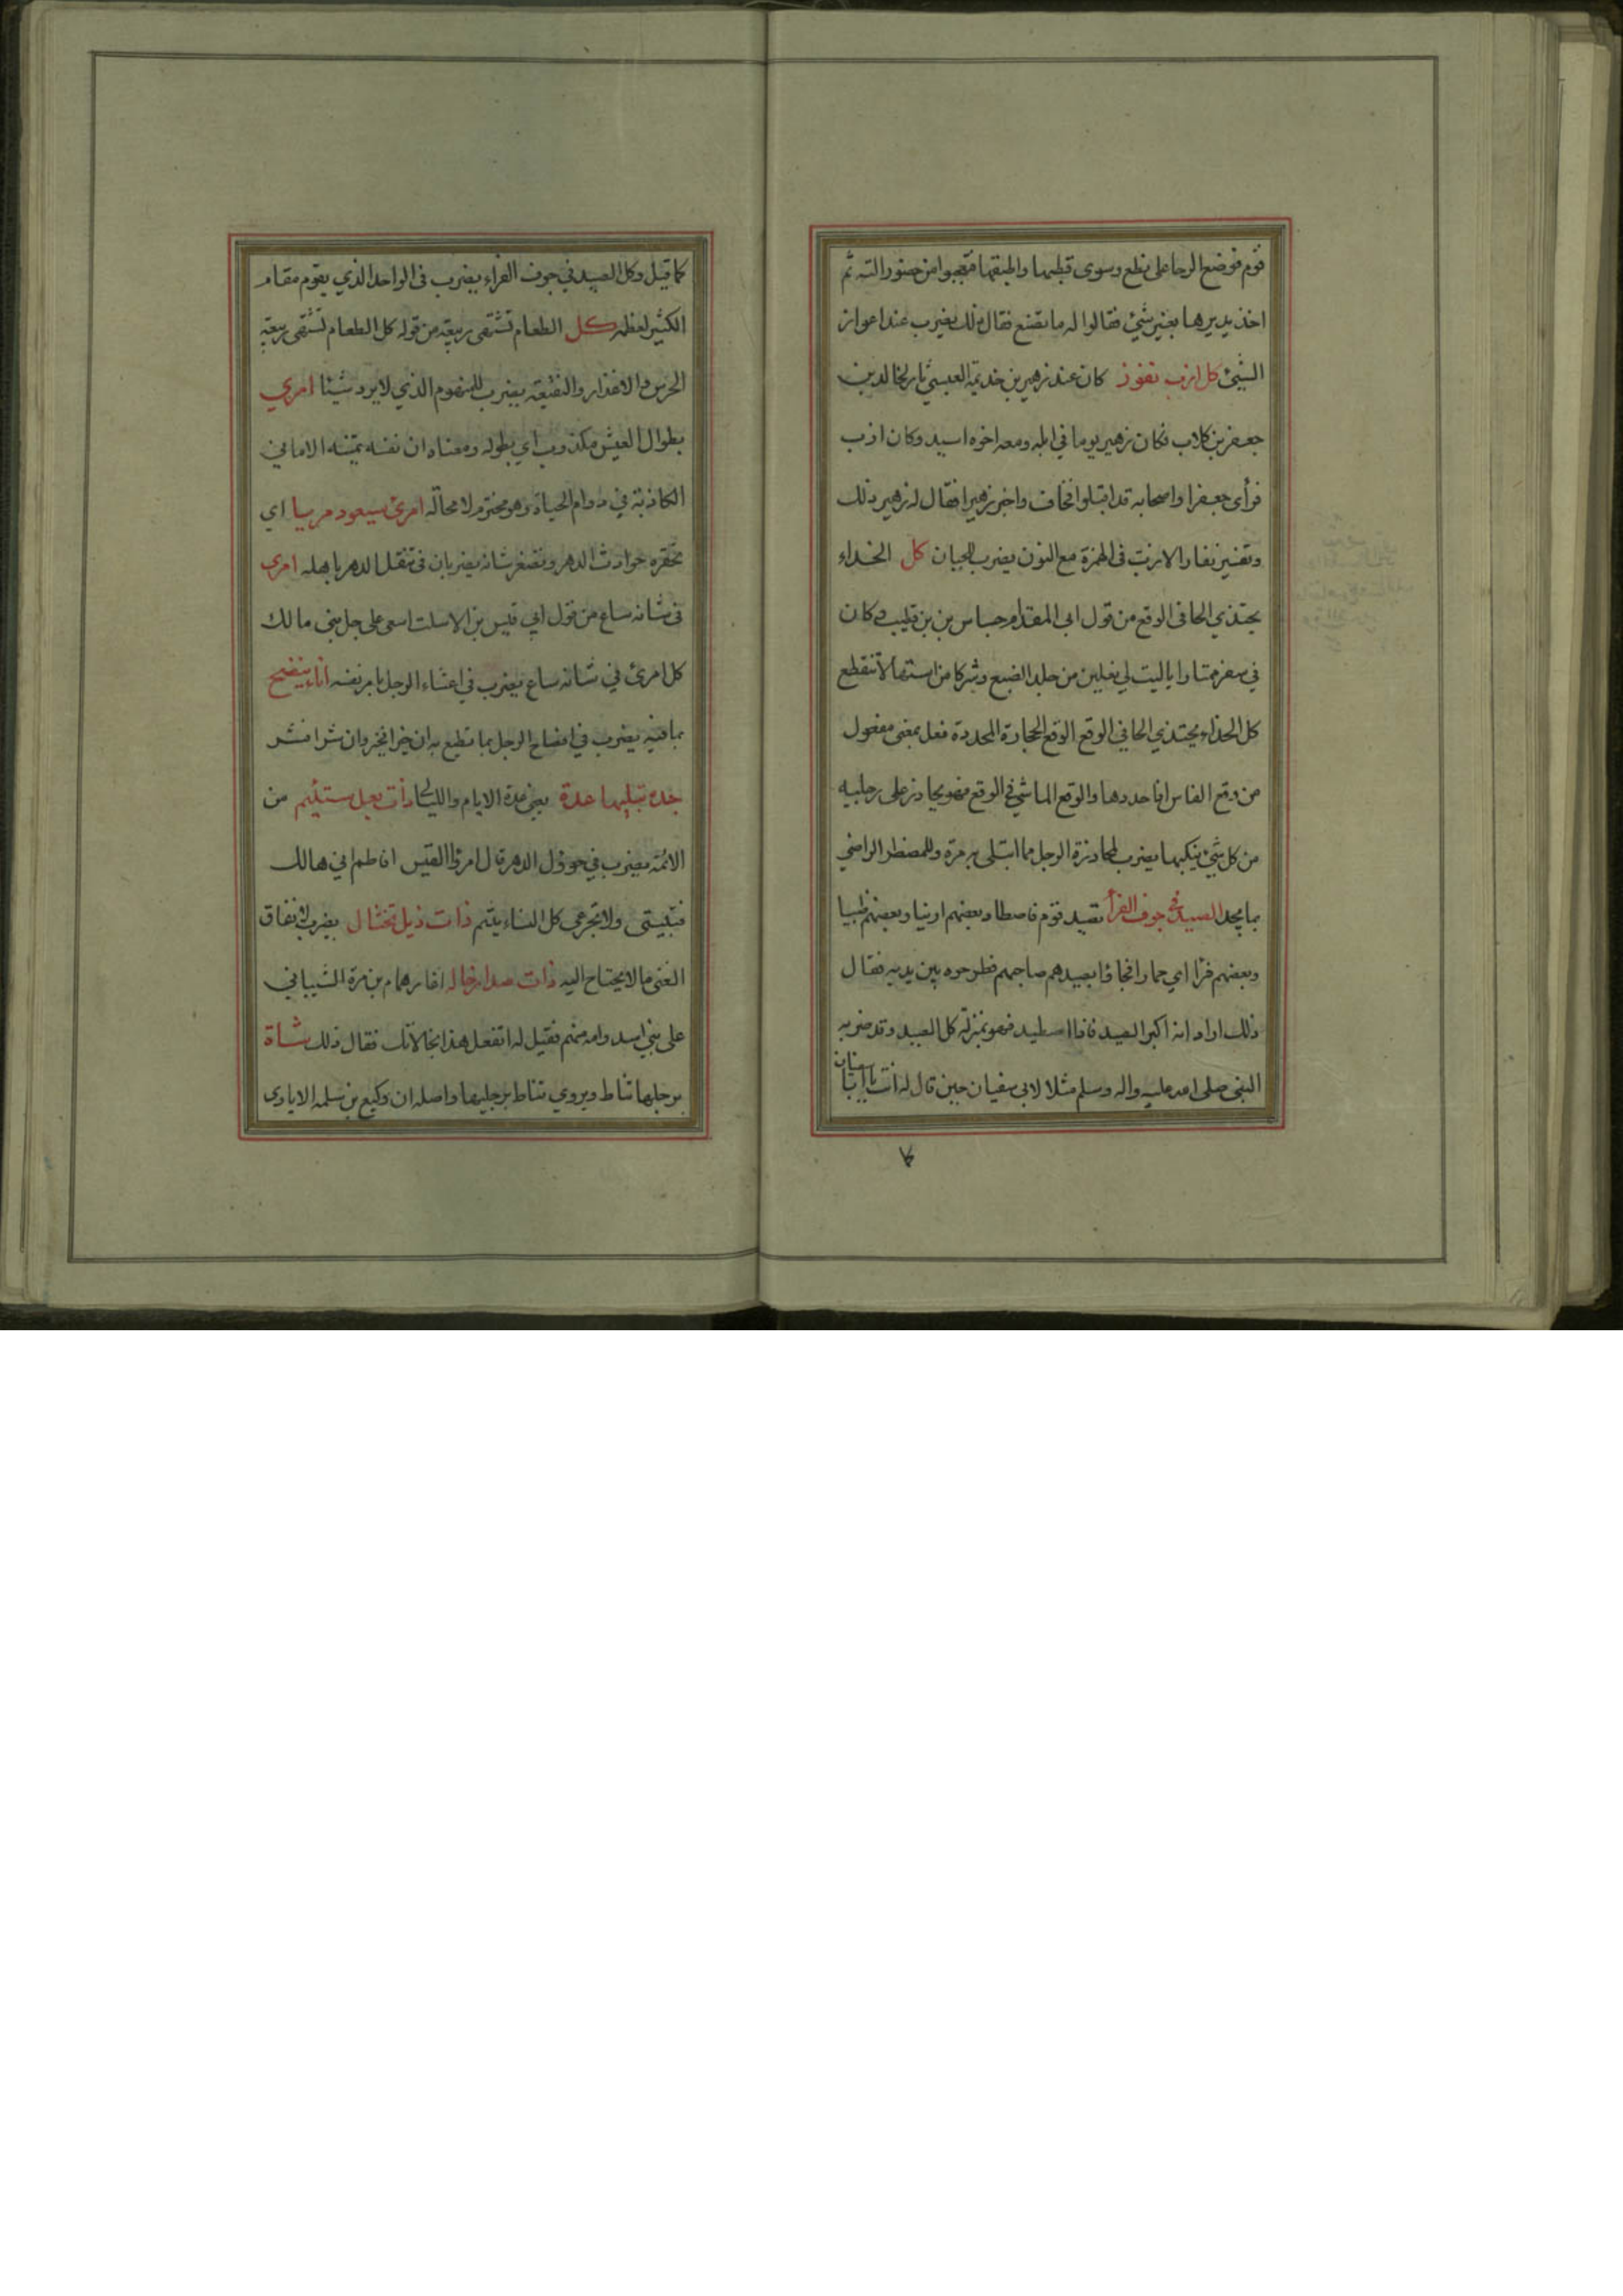 قوم فوضع الرحا على نطع وسوى قطبها واطبقها فتعجبوا من حضور الته ثم
اخذ يديرها بغير شيئ فقالوا له ما تصنع فقال ذلك يضرب عند اعواز
الشيئ كل ازب نفوز كان عند زهير بن خديمة العبسي ثار لخالد بن
جعفر بن كلاب فكان زهير يوما في ابله ومعه اخوه اسيد وكان ازب
فرأى جعفرا واصحابه قد اقبلوا فخاف واخبر زهيرا فقال له زهير ذلك
وتفسير نفار الازب في الهمزة مع النون يضرب للجبان كل الحذاء
يحتذي الحافي الوقع من قول ابي المقدام جساس بن بن قطيب وكان
في سفر ممتارا ياليت لي نعلين من جلد الضبع وشركا من استها لا تنقطع
كل الحذاء يحتذي الحافي الوقع الوقع الحجارة المحددة فعل بمعنى مفعول
من وقع الفاس اذا حددها والوقع الماشي في الوقع فهو يحاذر على رجليه
من كل شيئ ينكبها يضرب لمحاذرة الرجل مما ابتلى به مرة وللمضطر الراضي
بما يجد الصيد في جوف الفرأ تصيد قوم فاصطاد بعضهم ارنبا وبعضهم ظبيا
وبعضهم فرٔا اي حمارا فجاؤا بصيدهم صاحبهم فطرحوه بين يديه فقال
ذلك اراد انه اكبر الصيد فاذا اصطيد فهو بمنزلة كل الصيد وقد ضربه
النبي صلى الله عليه واله وسلم مثلا لابي سفيان حين قال له انت يا ابا سفيان
كما قيل وكل الصيد في جوف الفراء يضرب في الواحد الذي يقوم مقام
الكثير لعظمه كل الطعام تشتهي ربيعة من قوله كل الطعام تشتهي ربيعة
الخرس والاعذار والنقيعة يضرب للمنهوم الذي لا يرد شيئا امرئ
بطوال العيش مكذوب اي بطوله ومعناه ان نفسه تمنيه الاماني
الكاذبة في دوام الحياة وهو مخترم لا محالة امرئ سيعود مريبا اي
تحقره حوادث الدهر وتصغر شانه يضربان في تنقل الدهر باهله امرئ
في شانه ساع من قول ابي قيس بن الاسلت اسعى على جل بني مالك
كل امرئ في شانه ساع يضرب في اعتناء الرجل بامر نفسه اناء ينضح
بما فيه يضرب في افضاح الرجل بما تطبع به ان خيرا فخير وان شرا فشر
جدة تبليها عدة يعني عدة الايام والليالي ذات بعل ستئيم من
الائمة يضرب في حوول الدهر قال امرؤ القيس افاطم اني هالك
فتبيتي ولا تجزعي كل النساء يئم ذات ذيل تختال يضرب لانفاق
الغنى ما لا يحتاج اليه ذات صدار خاله اغار همام بن مرة الشيباني
على بني اسد وامه منهم فقيل له اتفعل هذا بخالاتك فقال ذلك شاة
برجلها تناط ويروي تناط برجليها واصله ان وكيع بن سلمة الايادي